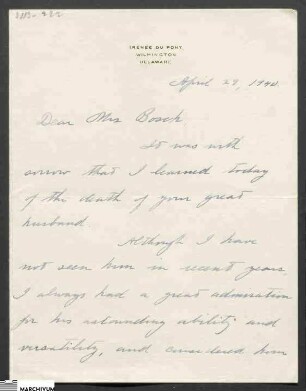 IRÉNÉE DU PONT
WILMINGTON
DELAWARE
April 29, 1940.
Dear Mrs Bosch
It was with
sorrow that I learned today
of the death of your great
husband
Although I have
not seen him in recent years
I always had a great admiration
for his astounding ability and
versatility, and considered him
MARCHIVUM